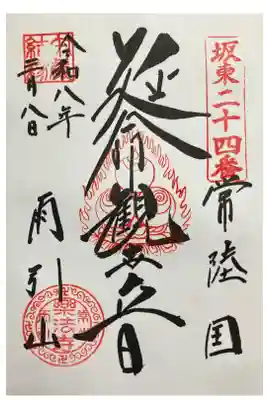 坂東二十四番
常陸国
延命観世音
雨引山
樂法寺
令和八年
三月八日